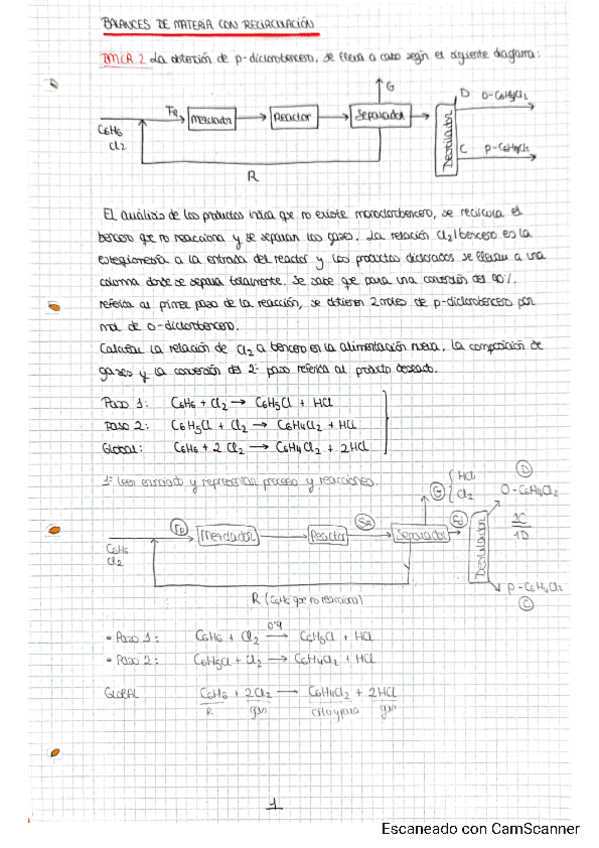 BALANCES DE MATERIA CON RECIRCULACIÓN
BMCR 2 La obtención de p-diclorobenceno, se lleva a cabo según el siguiente diagrama:
G
D O-C6H4Cl2
FR Mezclador Reactor Separador Destilador
C6H6
Cl2
C p-C6H4Cl2
R
El análisis de los productos indica que no existe monoclorobenceno, se recircula el
benceno que no reacciona y se separan los gases. La relación Cl2/benceno es la
estequiométria a la entrada del reactor y los productos diclorados se llevan a una
columna donde se separa totalmente. Se sabe que para una conversión del 90%
referida al primer paso de la reacción, se obtienen 2 moles de p-diclorobenceno por
mol de o-diclorobenceno.
Calcular la relación de Cl2 a benceno en la alimentación nueva, la composición de
gases y la conversión del 2º paso referida al producto deseado.
Paso 1: C6H6 + Cl2 → C6H5Cl + HCl
Paso 2: C6H5Cl + Cl2 → C6H4Cl2 + HCl
Global: C6H6 + 2 Cl2 → C6H4Cl2 + 2HCl
1º Leer enunciado y representar proceso y reacciones.
HCl
G Cl2
D
O-C6H4Cl2
Mezclador Reactor SR Separador Destilador
2C
1D
C6H6
Cl2
R (C6H6 que no reacciona)
p-C6H4Cl2
C
• Paso 1: C6H6 + Cl2 0'9→ C6H5Cl + HCl
• Paso 2: C6H5Cl + Cl2 → C6H4Cl2 + HCl
GLOBAL C6H6 + 2Cl2 → C6H4Cl2 + 2HCl
R gas orto y para gas
1
Escaneado con CamScanner